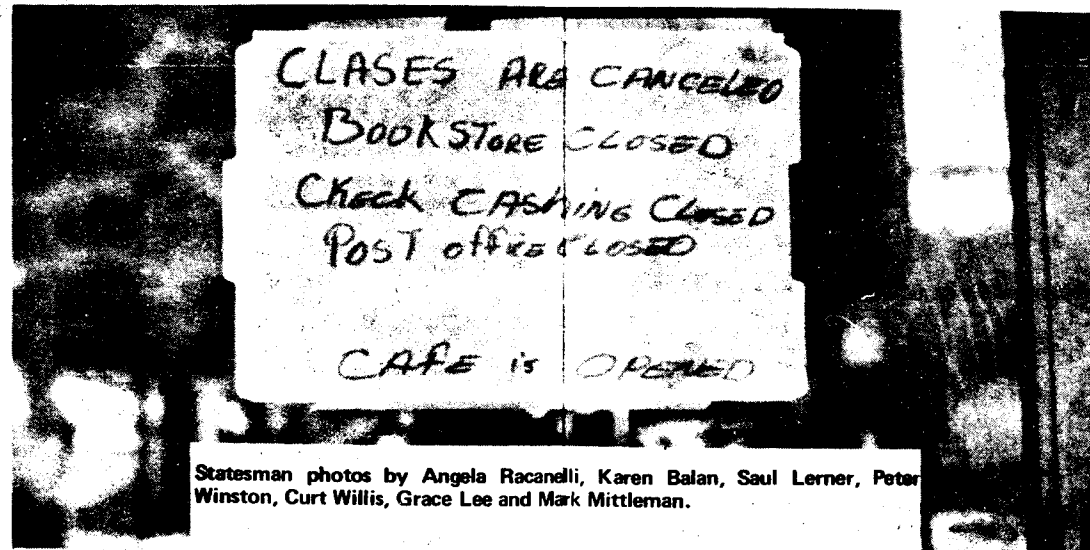 CLASES ARE CANCELED
BOOKSTORE CLOSED
CHECK CASHING CLOSED
POST OFFICE CLOSED
CAFE is OPENED
Statesman photos by Angela Racanelli, Karen Balan, Saul Lerner, Peter
Winston, Curt Willis, Grace Lee and Mark Mittleman.